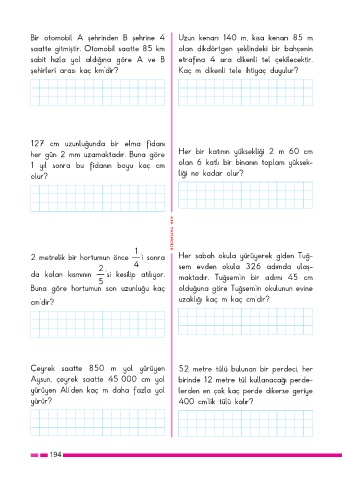 Bir otomobil A şehrinden B şehrine 4
saatte gitmiştir. Otomobil saatte 85 km
sabit hızla yol aldığına göre A ve B
şehirleri arası kaç km'dir?
127 cm uzunluğunda bir elma fidanı
her gün 2 mm uzamaktadır. Buna göre
1 yıl sonra bu fidanın boyu kaç cm
olur?
2 metrelik bir hortumun önce 1/4 'i sonra
da kalan kısmının 2/5 'si kesilip atılıyor.
Buna göre hortumun son uzunluğu kaç
cm'dir?
Çeyrek saatte 850 m yol yürüyen
Aysun, çeyrek saatte 45 000 cm yol
yürüyen Ali'den kaç m daha fazla yol
yürür?
Uzun kenarı 140 m, kısa kenarı 85 m
olan dikdörtgen şeklindeki bir bahçenin
etrafına 4 sıra dikenli tel çekilecektir.
Kaç m dikenli tele ihtiyaç duyulur?
Her bir katının yüksekliği 2 m 60 cm
olan 6 katlı bir binanın toplam yüksek-
liği ne kadar olur?
Her sabah okula yürüyerek giden Tuğ-
sem evden okula 326 adımda ulaş-
maktadır. Tuğsem'in bir adımı 45 cm
olduğuna göre Tuğsem'in okulunun evine
uzaklığı kaç m kaç cm'dir?
52 metre tülü bulunan bir perdeci, her
birinde 12 metre tül kullanacağı perde-
lerden en çok kaç perde dikerse geriye
400 cm'lik tülü kalır?
194